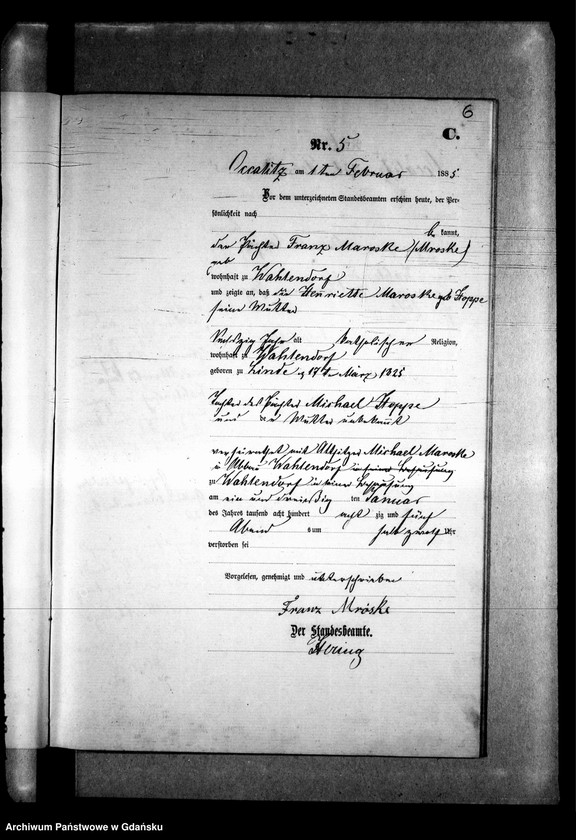 6
C.
Nr. 5
Occalitz am 1ten Februar 1885
Vor dem unterzeichneten Standesbeamten erschien heute, der Per-
sönlichkeit nach
be kannt,
der Pächter Franz Maroske (Mroske)
geb
wohnhaft zu Wahlendorf
und zeigte an, daß die Henriette Maroske geb Hoppe
seine Mutter
Sechzig Jahr alt katholischer Religion,
wohnhaft zu Wahlendorf
geboren zu Linde 17te März 1825
Tochter des Pächter Michael Hoppe
und der Mutter unbekannt
verheirathet mit Altsitzer Michael Maroske
Wahlendorf in seiner Behausung
zu Wahlendorf in seiner Behausung
am ein und dreißig ten Januar
des Jahres tausend acht hundert acht zig und fünf
Abend s um halb zwölf Uhr
verstorben sei
Vorgelesen, genehmigt und unterschrieben
Franz Mróske
Der Standesbeamte.
Hering
Archiwum Państwowe w Gdańsku